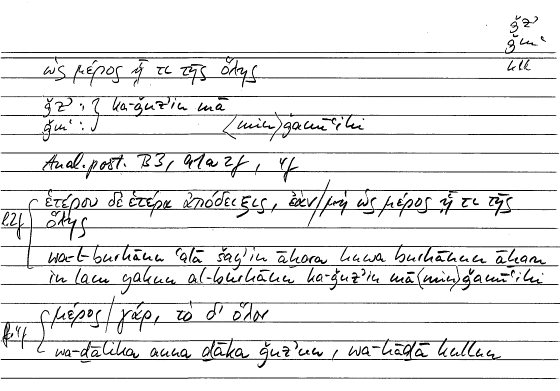 ǧzʾ
ǧmʿ
kll
ὡς μέρος ἤ τι τῆς ὅλης
ǧzʾ : } ka-ǧuzʾin mā
ǧmʿ : ⟨min⟩ ǧamīʿihi
Anal. post. B3, 91a 2f , 4f
ἑτέρου δὲ ἑτέρα ἀπόδειξις, ἐὰν/μὴ ὡς μέρος ᾖ τι τῆς
2f { ὅλης
wa-l-burhānu ʿalā šayʾin āḫara huwa burhānun āḫaru
in lam yakun al-burhānu ka-ǧuzʾin mā ⟨min⟩ ǧamīʿihi
4f { μέρος / γάρ, τὸ δ’ ὅλον
wa-ḏālika anna ḏāka ǧuzʾun, wa-hāḏā kullun